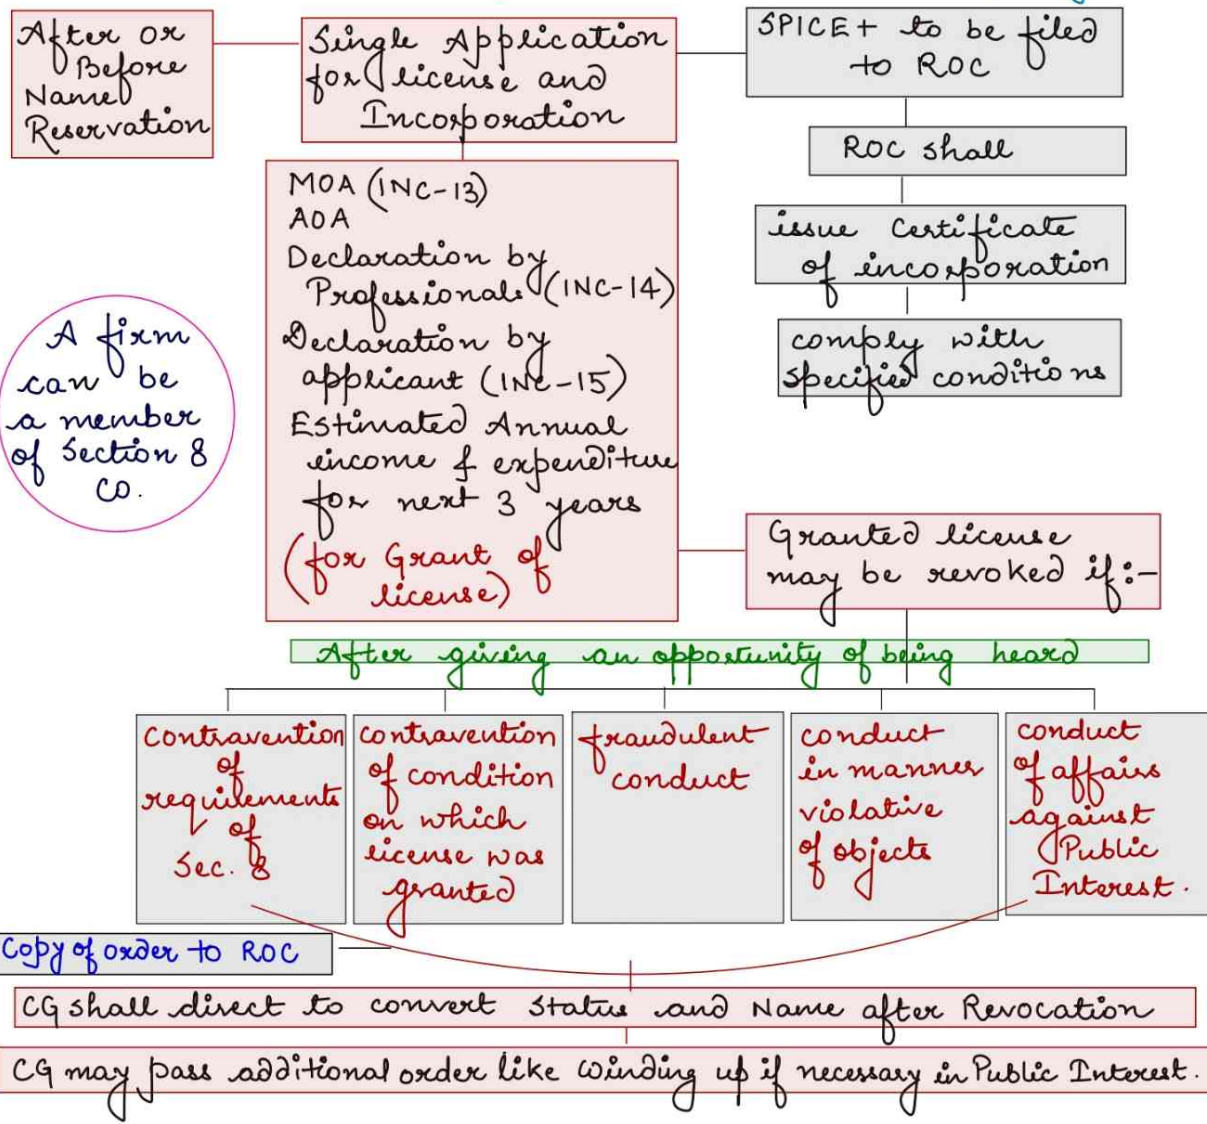 After or
Before
Name
Reservation
Single Application
for license and
Incorporation
SPICE+ to be filed
to ROC
ROC shall
issue Certificate
of incorporation
comply with
specified conditions
MOA (INC-13)
AOA
Declaration by
Professionals (INC-14)
Declaration by
applicant (INC-15)
Estimated Annual
income & expenditure
for next 3 years
(for Grant of
license)
A firm
can be
a member
of Section 8
CO.
Granted license
may be revoked if:-
After giving an opportunity of being heard
Contravention
of
requirements
of
Sec. 8
contravention
of condition
on which
license was
granted
fraudulent
conduct
conduct
in manner
violative
of objects
conduct
of affairs
against
Public
Interest.
Copy of order to ROC
CG shall direct to convert Status and Name after Revocation
CG may pass additional order like winding up if necessary in Public Interest.